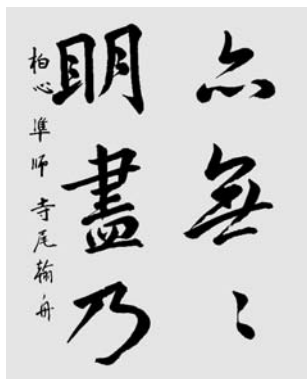 亦無〻
明盡乃
柏心準師 寺尾翰舟